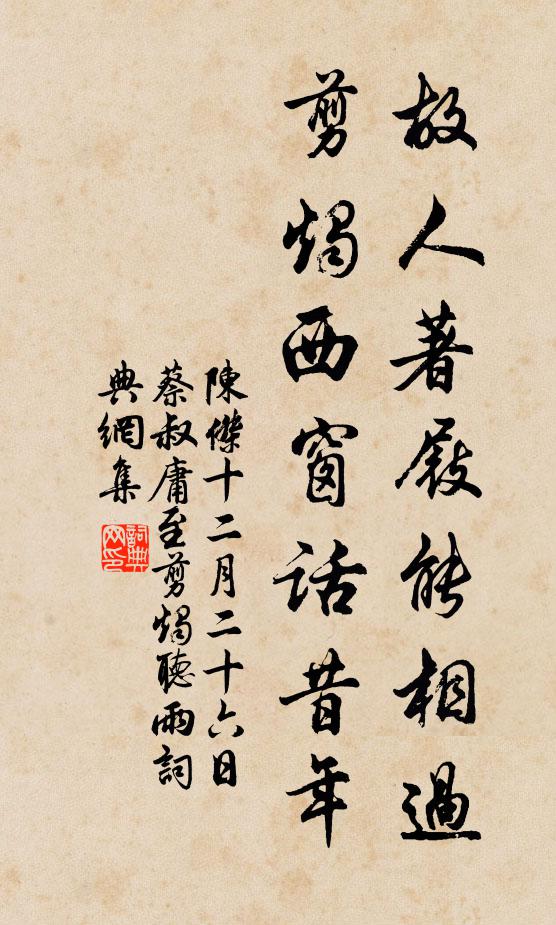 故人著屐能相過
剪燭西窗話昔年
陳傑十二月二十六日
蔡叔庸至剪燭聽雨詞
典網集
詞典網印